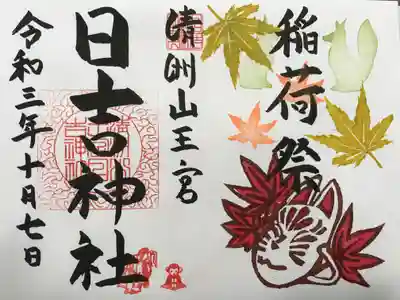 稲荷祭
清洲山王宮
日吉神社
令和三年十月七日